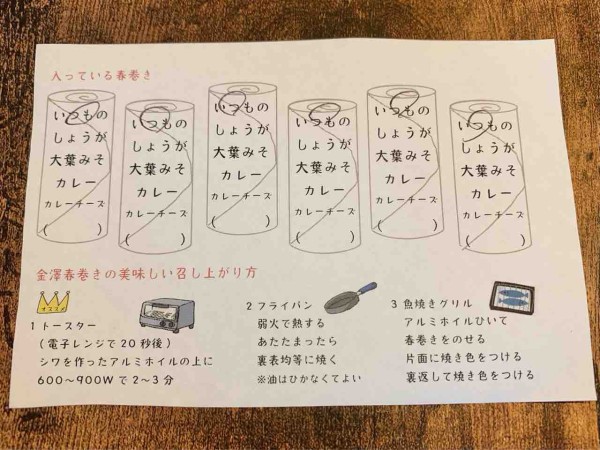 入っている春巻き
いつもの
しょうが
大葉みそ
カレー
カレーチーズ
(　　　)
いつもの
しょうが
大葉みそ
カレー
カレーチーズ
(　　　)
いつもの
しょうが
大葉みそ
カレー
カレーチーズ
(　　　)
いつもの
しょうが
大葉みそ
カレー
カレーチーズ
(　　　)
いつもの
しょうが
大葉みそ
カレー
カレーチーズ
(　　　)
いつもの
しょうが
大葉みそ
カレー
カレーチーズ
(　　　)
金澤春巻きの美味しい召し上がり方
オススメ
1 トースター
(電子レンジで20秒後)
シワを作ったアルミホイルの上に
600〜900Wで2〜3分
2 フライパン
弱火で熱する
あたたまったら
裏表均等に焼く
※油はひかなくてよい
3 魚焼きグリル
アルミホイルひいて
春巻きをのせる
片面に焼き色をつける
裏返して焼き色をつける